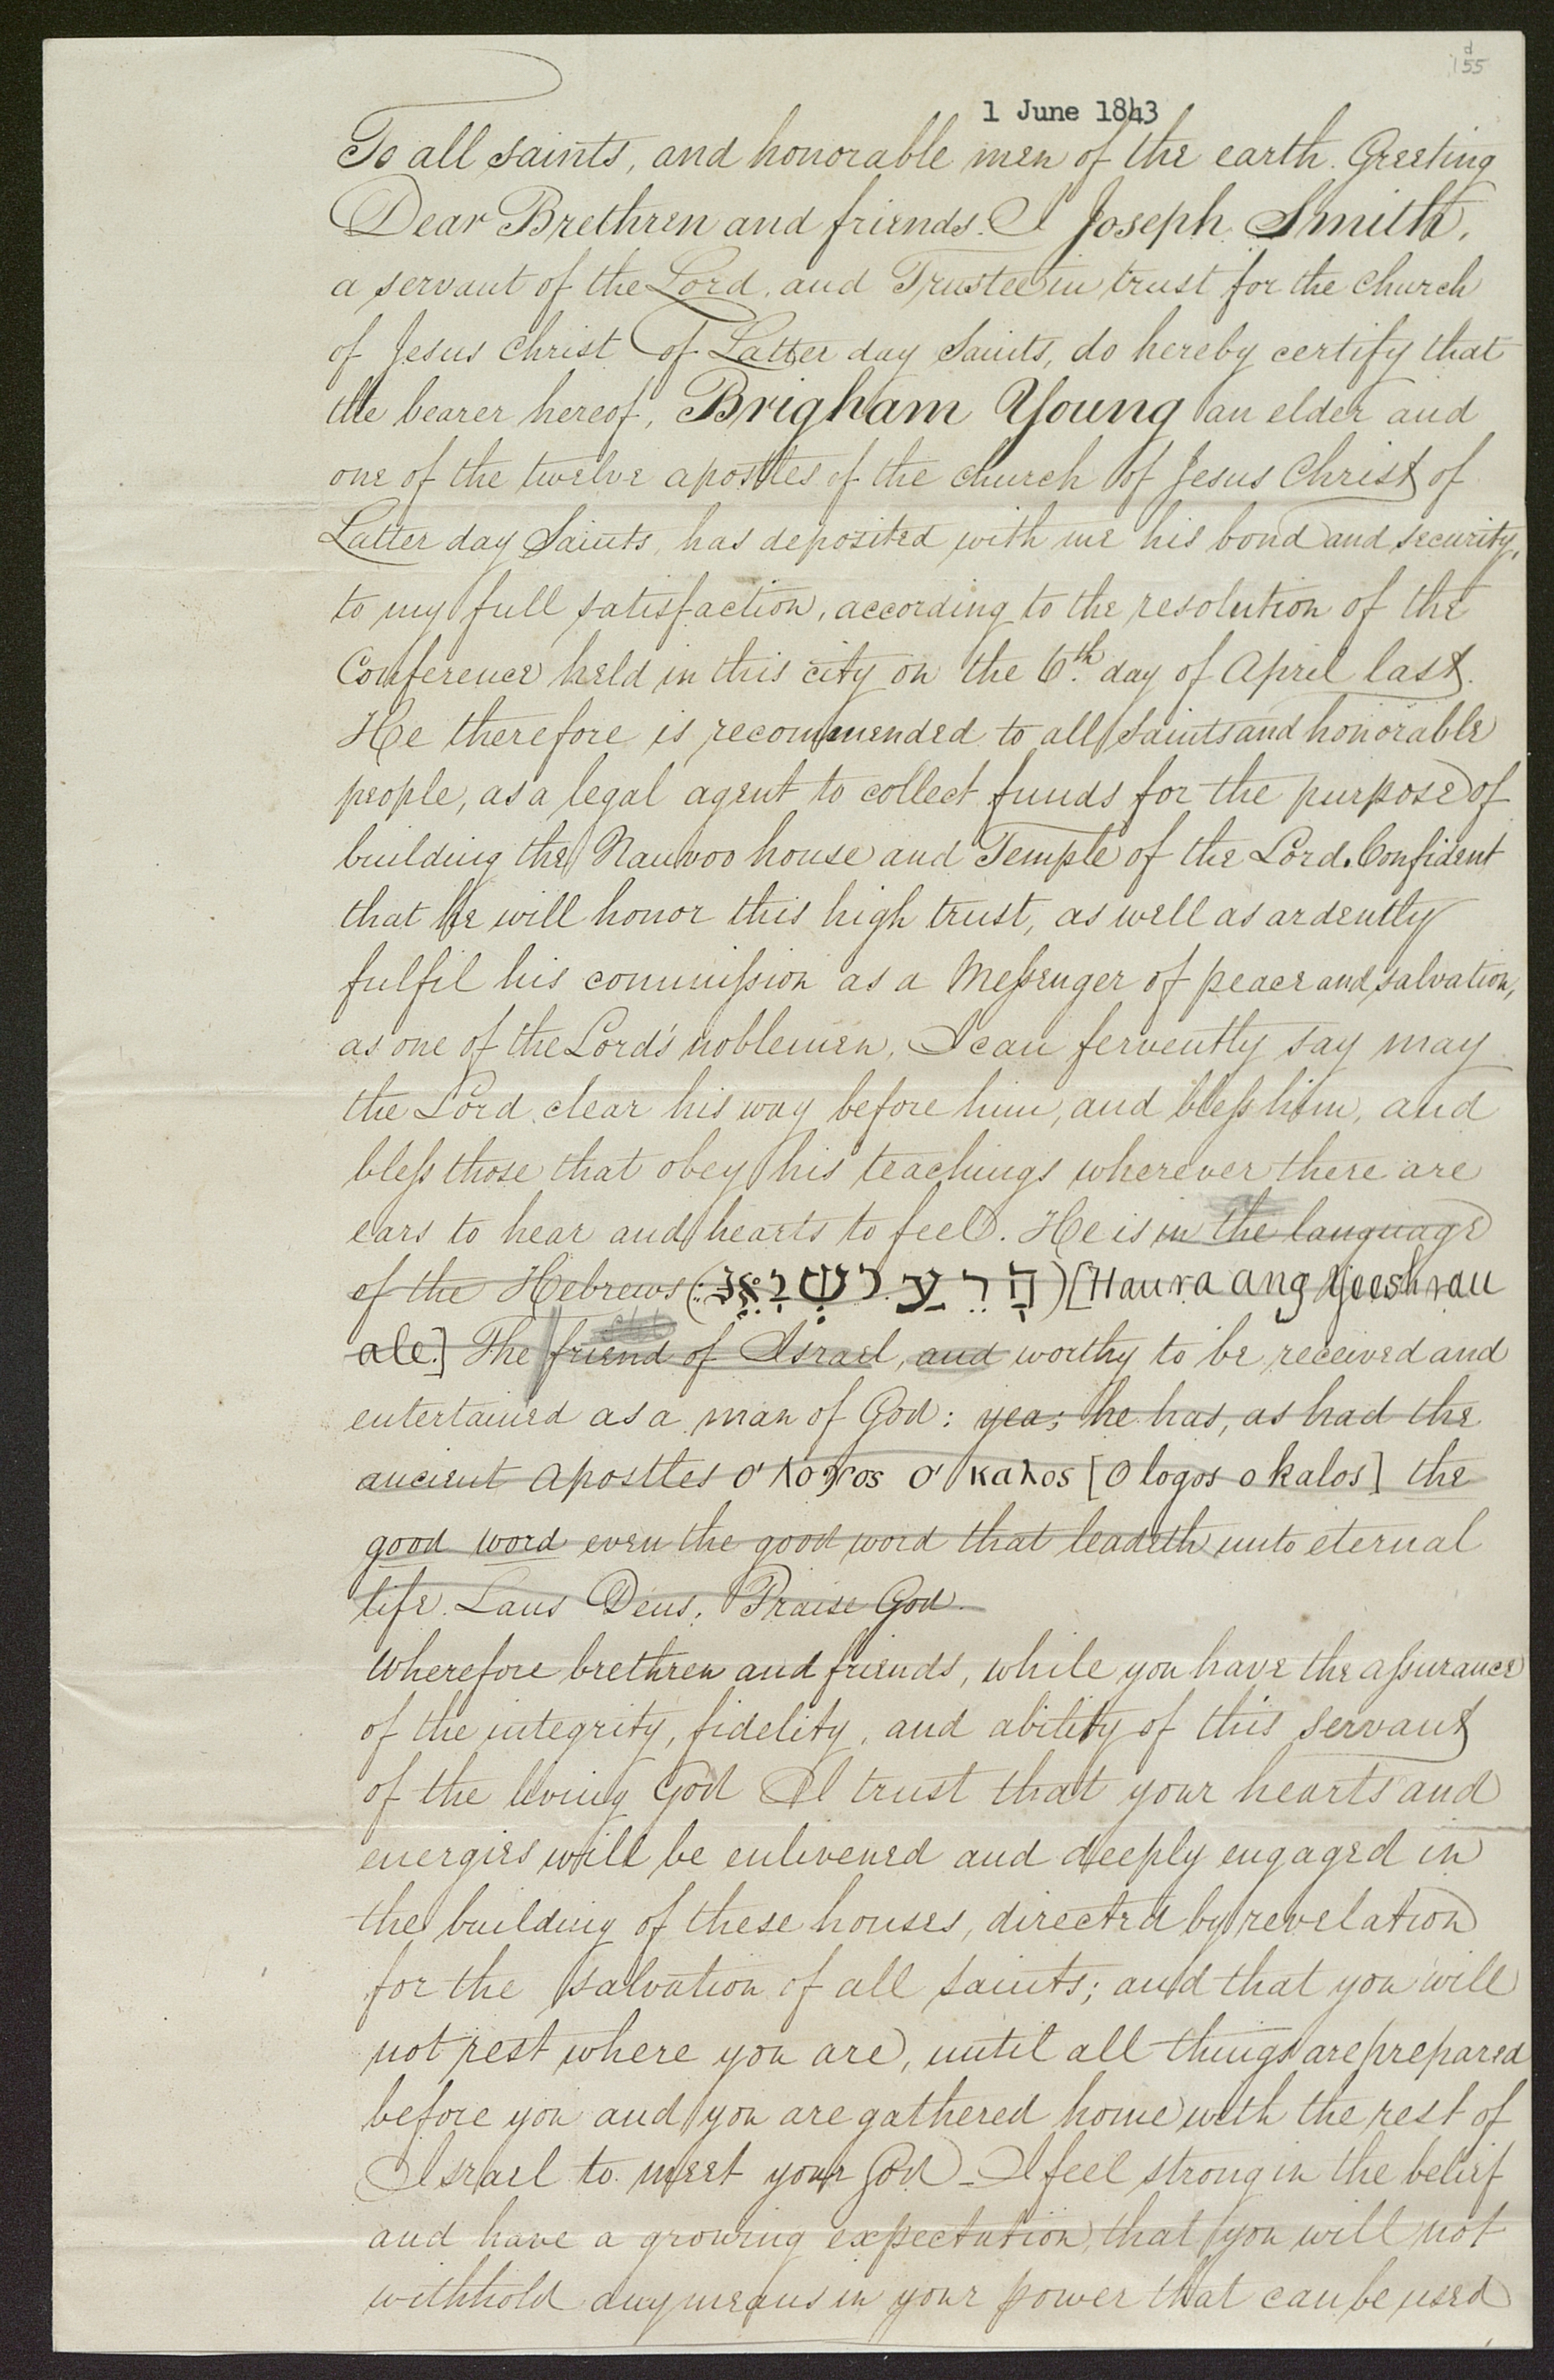 d
155
1 June 1843
To all saints, and honorable men of the earth. Greeting
Dear Brethren and friends. I Joseph Smith,
a servant of the Lord, and Trustee in trust for the church
of Jesus Christ of Latter day Saints, do hereby certify that
the bearer hereof, Brigham Young an elder and
one of the twelve apostles of the church of Jesus Christ of
Latter day Saints, has deposited with me his bond and security,
to my full satisfaction, according to the resolution of the
Conference held in this city on the 6th. day of April last.
He therefore is recommended to all saints and honorable
people, as a legal agent to collect funds for the purpose of
building the Nauvoo house and Temple of the Lord. Confident
that he will honor this high trust, as well as ardently
fulfil his commission as a Messenger of peace and salvation,
as one of the Lord's noblemen, I can fervently say may
the Lord clear his way before him, and bless him, and
bless those that obey his teachings wherever there are
ears to hear and hearts to feel. He is in the language
of the Hebrews () [Haura ang Yeeshrau
ale.] The friend of Israel, and worthy to be received and
entertained as a man of God: yea; he has, as had the
ancient apostles ο' λογος ο' καλος [O logos o kalos] the
good word even the good word that leadeth unto eternal
life. Laus Deus; Praise God.
Wherefore brethren and friends, while you have the assurance
of the integrity, fidelity, and ability of this servant
of the living God I trust that your hearts and
energies will be enlivened and deeply engaged in
the building of these houses, directed by revelation
for the salvation of all saints; and that you will
not rest where you are, until all things are prepared
before you and you are gathered home with the rest of
Israel to meet your God - I feel strong in the belief
and have a growing expectation, that you will not
withhold any means in your power that can be used